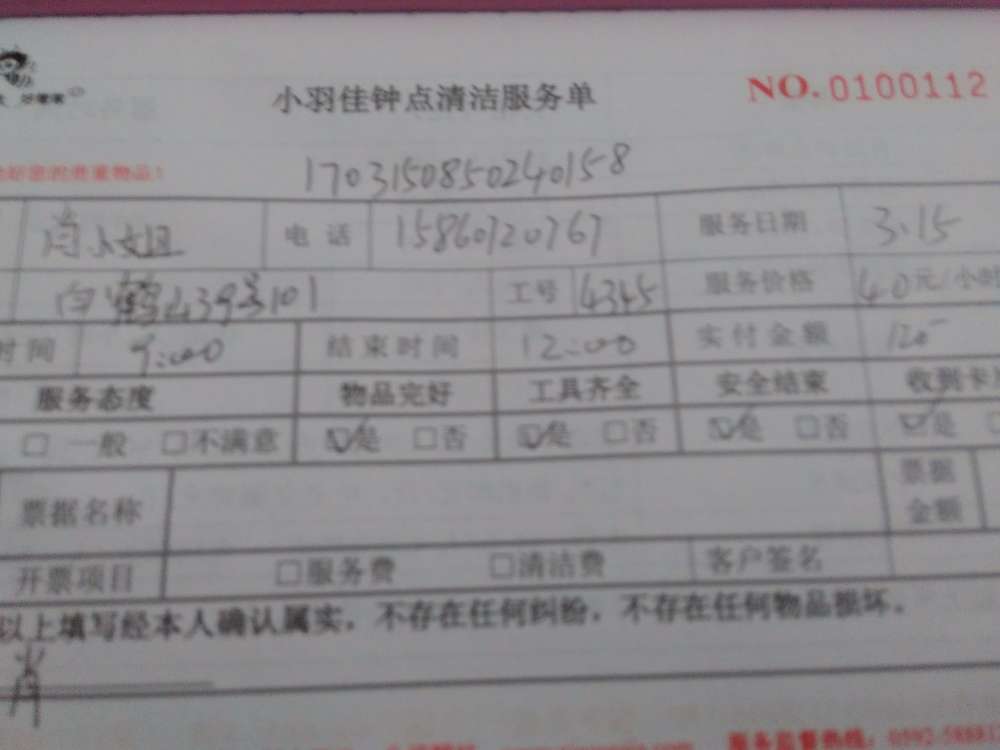 小羽佳钟点清洁服务单 NO.0100112
您的贵重物品!
1703150850240158
肖小姐 电话 15860720767 服务日期 3.15
白鹤山39号101 工号 4345 服务价格 40元/小时
时间 9:00 结束时间 12:00 实付金额 120
服务态度 物品完好 工具齐全 安全结束 收到卡
□一般 □不满意 ☑是 □否 ☑是 □否 ☑是 □否 ☑是
票据名称 票据金额
开票项目 □服务费 □清洁费 客户签名
以上填写经本人确认属实,不存在任何纠纷,不存在任何物品损坏。
肖
服务监督热线:0592-5888